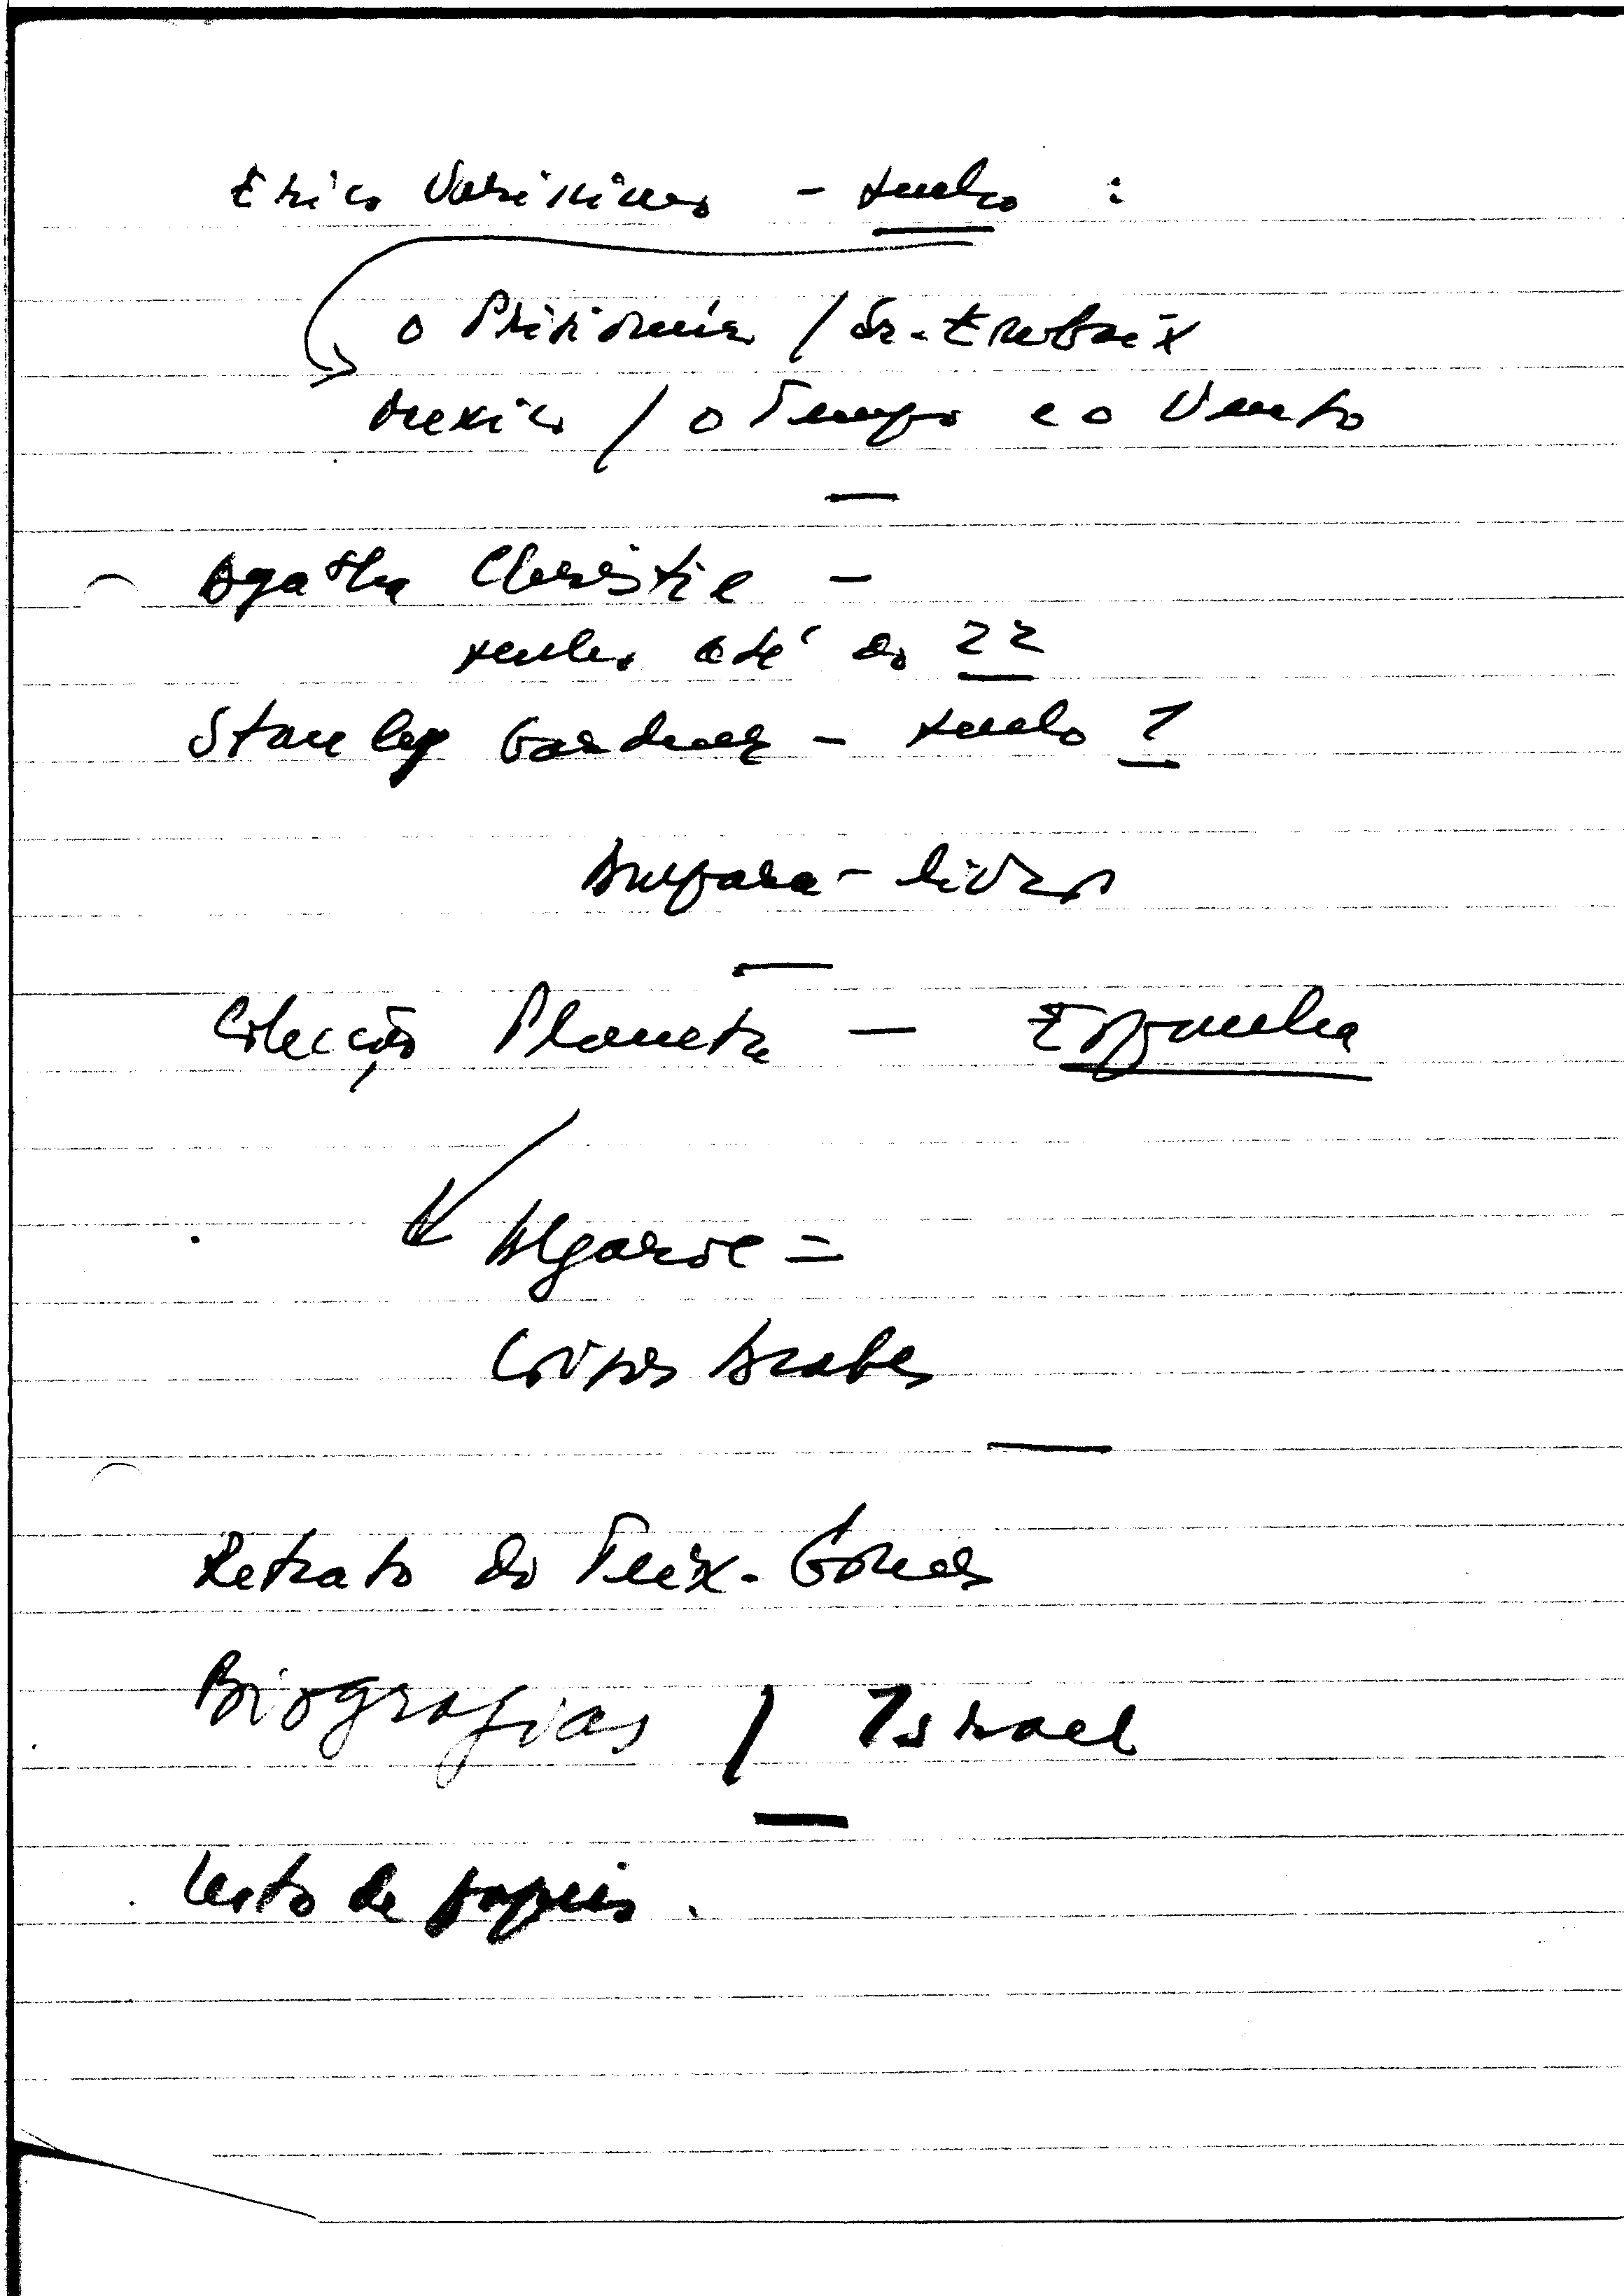 Erico Verissimo - tenho :
O Prisioneiro / Sr. Embaix
Mexico / O Tempo e o Vento
Agatha Christie -
tenho até ao 22
Stanley Gardner - tenho 1
Ampara - livros
Colecção Planeta - Espanha
Algarve =
Arabes
Retrato do Teix. Gomes
Biografias / Israel
Cesto de papeis.